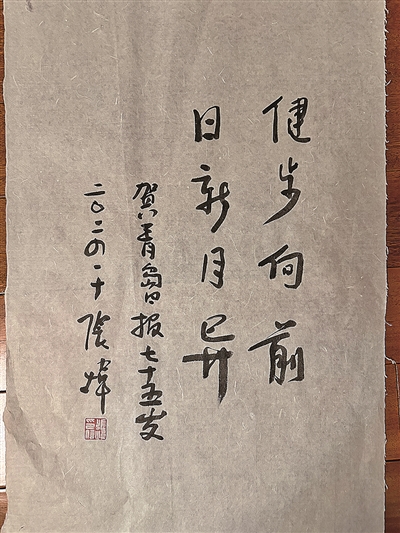 健步向前
日新月异
贺青岛日报七十五岁
二〇二四·十 張煒